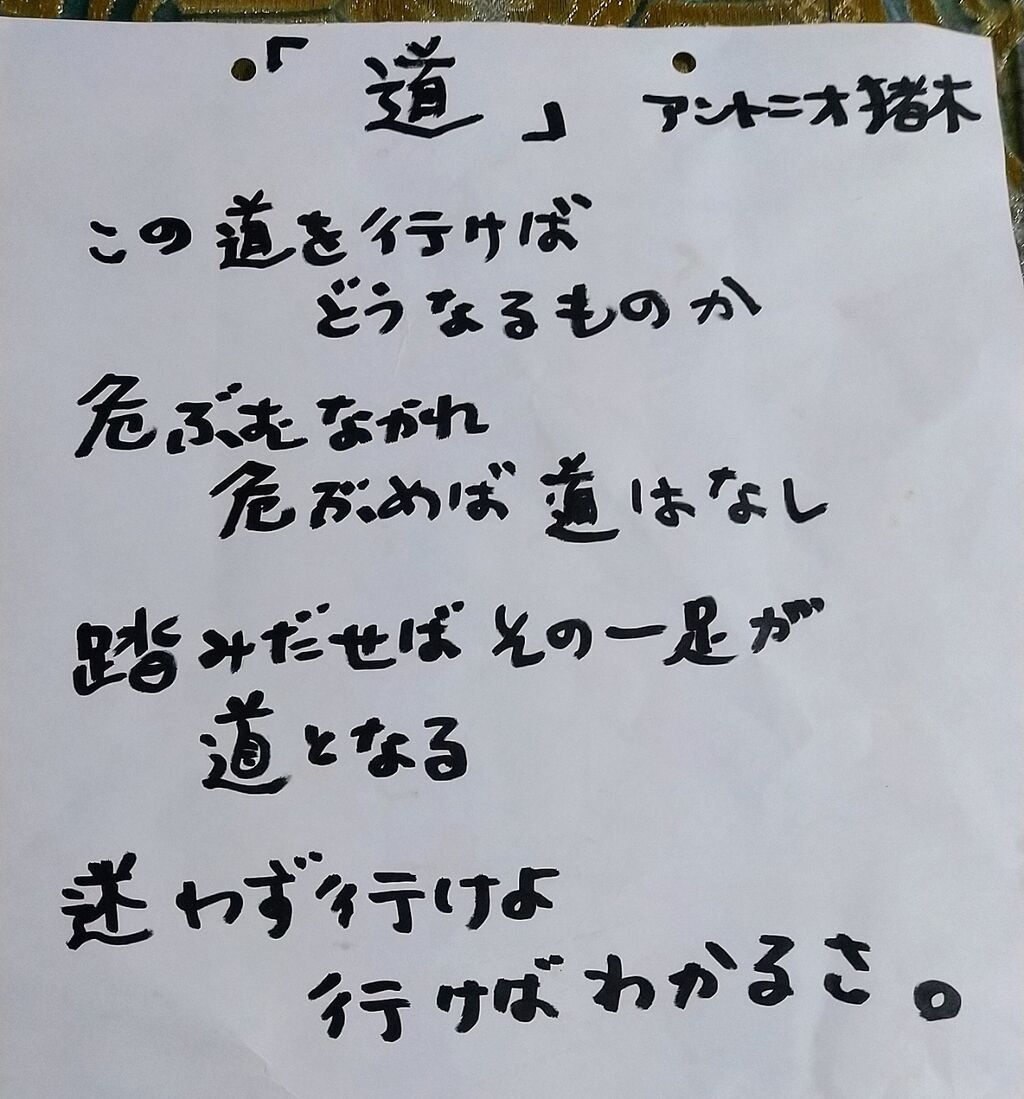 「道」 アントニオ猪木
この道を行けば
どうなるものか
危ぶむなかれ
危ぶめば道はなし
踏みだせばその一足が
道となる
迷わず行けよ
行けばわかるさ。